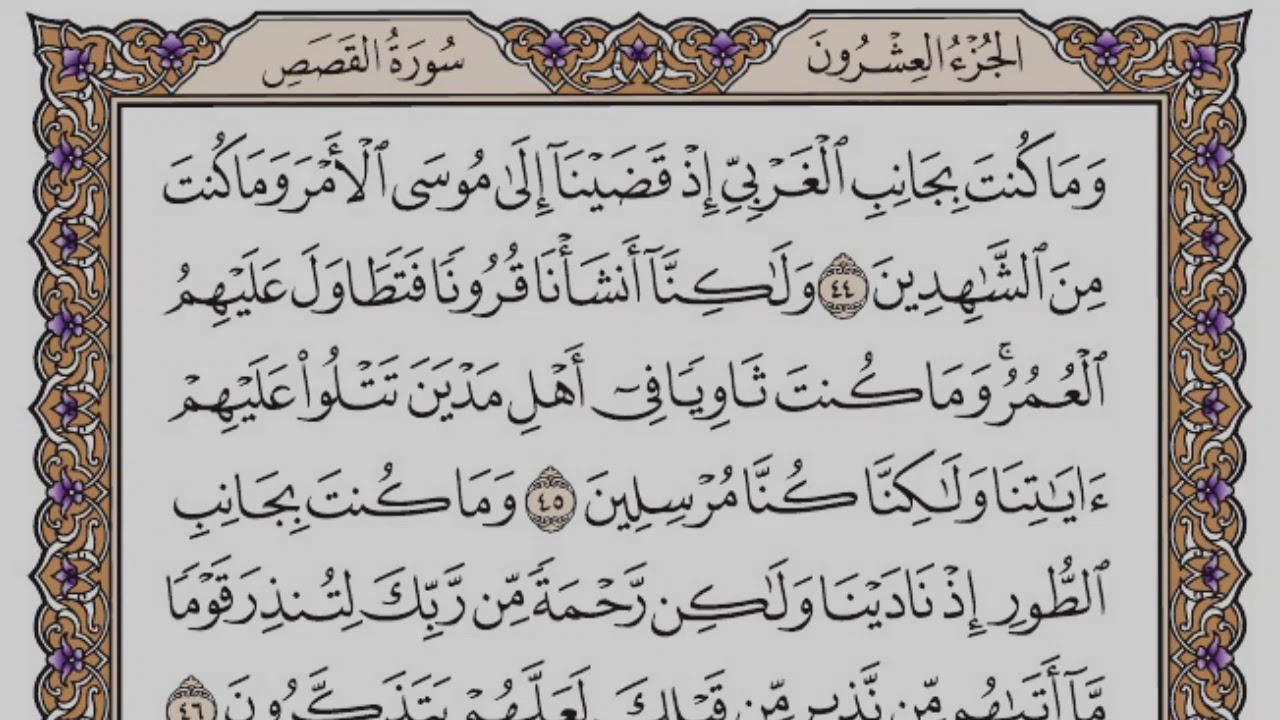 الجُزْءُ العِشْرُونَ
سُورَةُ القَصَصِ
وَمَا كُنتَ بِجَانِبِ ٱلْغَرْبِيِّ إِذْ قَضَيْنَآ إِلَىٰ مُوسَى ٱلْأَمْرَ وَمَا كُنتَ
مِنَ ٱلشَّٰهِدِينَ ٤٤ وَلَٰكِنَّآ أَنشَأْنَا قُرُونًا فَتَطَاوَلَ عَلَيْهِمُ
ٱلْعُمُرُ ۚ وَمَا كُنتَ ثَاوِيًا فِىٓ أَهْلِ مَدْيَنَ تَتْلُوا۟ عَلَيْهِمْ
ءَايَٰتِنَا وَلَٰكِنَّا كُنَّا مُرْسِلِينَ ٤٥ وَمَا كُنتَ بِجَانِبِ
ٱلطُّورِ إِذْ نَادَيْنَا وَلَٰكِن رَّحْمَةً مِّن رَّبِّكَ لِتُنذِرَ قَوْمًا
مَّآ أَتَىٰهُم مِّن نَّذِيرٍ مِّن قَبْلِكَ لَعَلَّهُمْ يَتَذَكَّرُونَ ٤٦